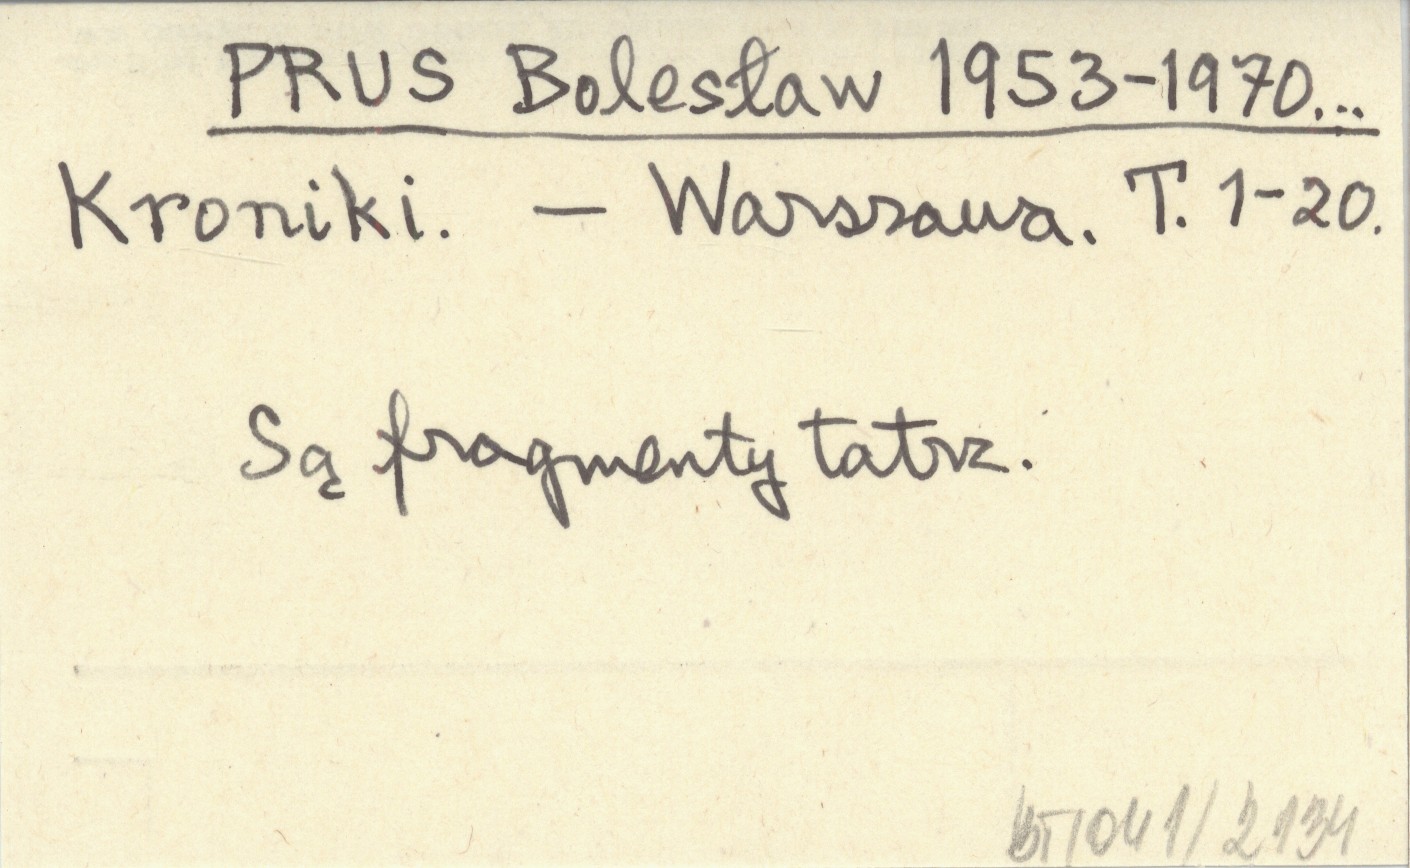 PRUS Bolesław 1953-1970...
Kroniki. — Warszawa. T. 1-20.
Są fragmenty tatrz.
BT/041/2134